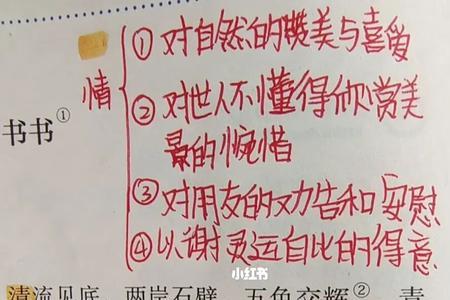 ①对自然的赞美与喜爱
情
②对世人不懂得欣赏美
书书①
景的惋惜
③对朋友的劝告和安慰
④以谢灵运自比的得意
小红书
清流见底，两岸石壁，五色交辉②。青